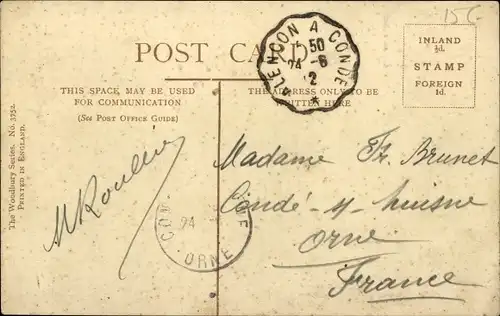 15C
POST CARD
ALENCON A CONDÉ
5 50
24 - 6
2
INLAND
½d.
STAMP
FOREIGN
1d.
THIS SPACE MAY BE USED
FOR COMMUNICATION
(See Post Office Guide)
THE ADDRESS ONLY TO BE
WRITTEN HERE
The Woodbury Series. No. 3154.
Printed in England.
Madame Th. Brunet
Condé-s/-huisne
Orne
France
24
ORNE